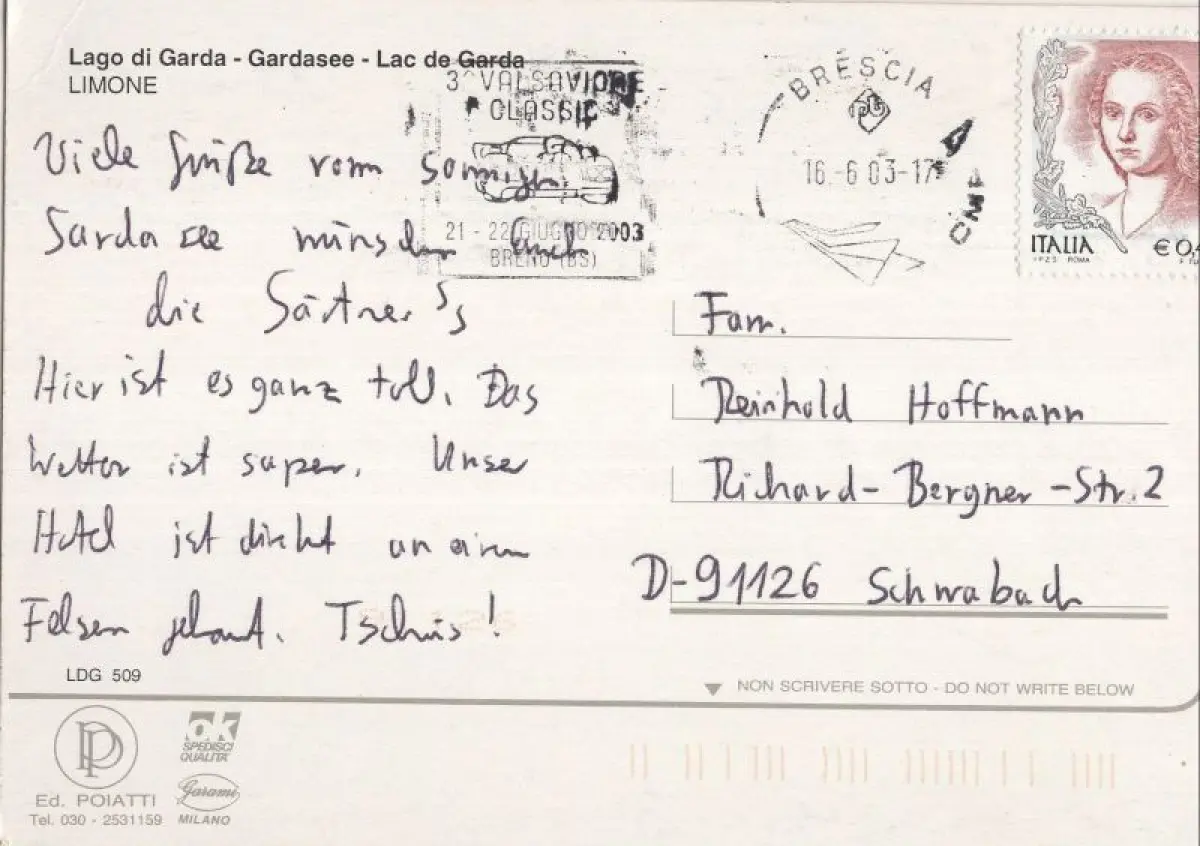 Lago di Garda - Gardasee - Lac de Garda
LIMONE
Viele Grüße vom sonnigen
Gardasee wünschen Euch
die Gärtner's
Hier ist es ganz toll. Das
Wetter ist super. Unser
Hotel ist direkt an einen
Felsen gebaut. Tschüs!
LDG 509
3° VALSAVIORE
CLASSIC
21 - 22 GIUGNO 2003
BRENO (BS)
BRESCIA
16.-6 03-17
CMP
ITALIA
I.P.Z.S. ROMA
€0,4
Fam.
Reinhold Hoffmann
Richard-Bergner-Str. 2
D-91126 Schwabach
NON SCRIVERE SOTTO - DO NOT WRITE BELOW
PP
Ed. POIATTI
Tel. 030 - 2531159
ok
SPEDISCI
QUALITA'
Garami
MILANO